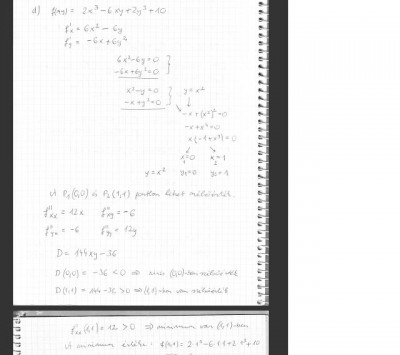 f(x,y) = 2x³ - 6xy + 2y³ + 10
f'x = 6x² - 6y
f'y = -6x + 6y²
6x² - 6y = 0
-6x + 6y² = 0
x² - y = 0 y = x²
-x + y² = 0
-x + (x²)² = 0
-x + x⁴ = 0
x(-1 + x³) = 0
x₁ = 0 x₂ = 1
y = x² y₁ = 0 y₂ = 1
A P₁(0,0) és P₂(1,1) pontban lehet szélsőérték.
f''xx = 12x f''xy = -6
f''yx = -6 f''yy = 12y
D = 144xy - 36
D(0,0) = -36 < 0 ⇒ nincs (0,0)-ban szélsőérték
D(1,1) = 144 - 36 > 0 ⇒ (1,1)-ben van szélsőérték
f''xx(1,1) = 12 > 0 ⇒ minimum van (1,1)-ben
A minimum értéke: f(1,1) = 2·1³ - 6·1·1 + 2·1³ + 10